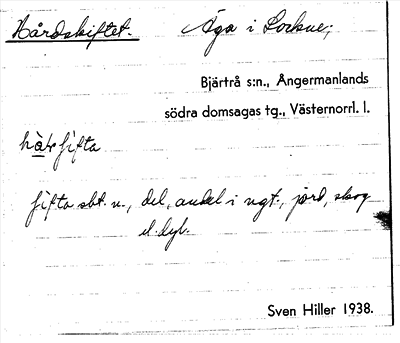 Hårdskiftet. Äga i Lockne;
Bjärtrå s:n., Ångermanlands
södra domsagas tg., Västernorrl. l.
fifta sbt. n., del, andel i ngt., jord, skog
el. dyl.
Sven Hiller 1938.